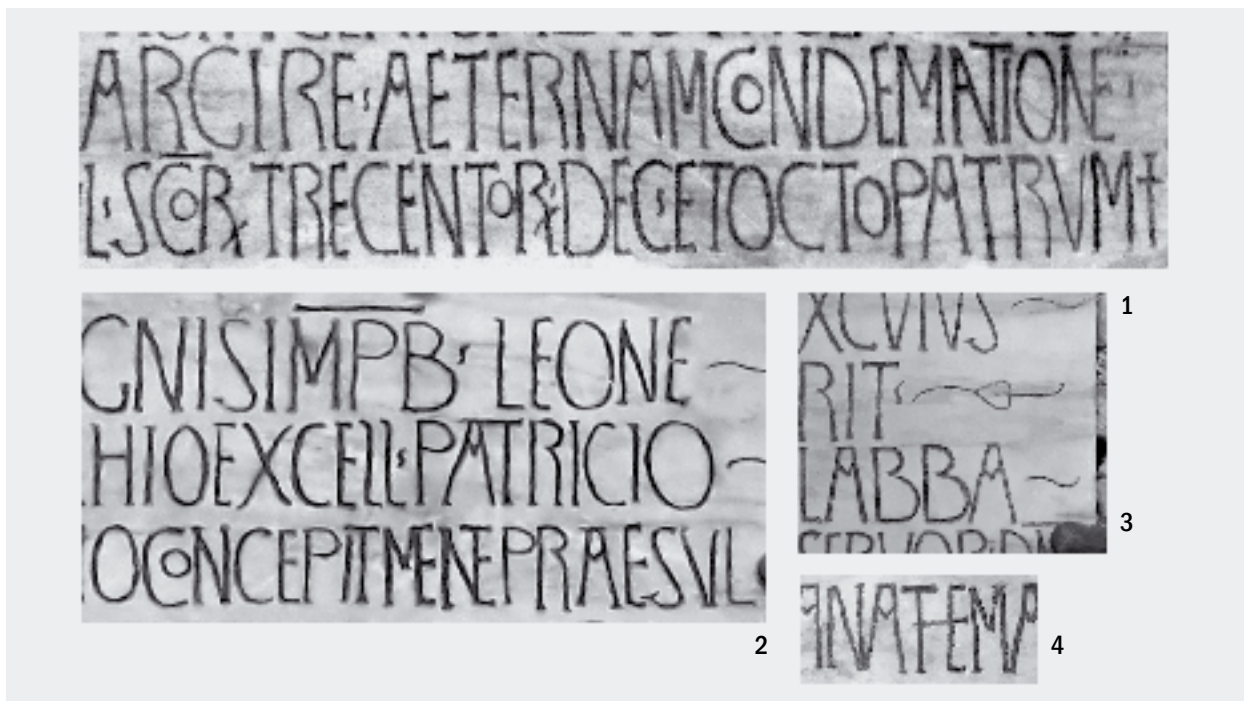 ARCIRE AETERNAM CONDEMATIONE
L SCOR TRECENTOR DEC ET OCTO PATRVM †
GNIS IMPB LEONE
HIO EXCELL PATRICIO
O CONCEPIT MENE PRAESVL
XCVIVS
RIT
LABBA
1
2
3
ANATHEMA
4